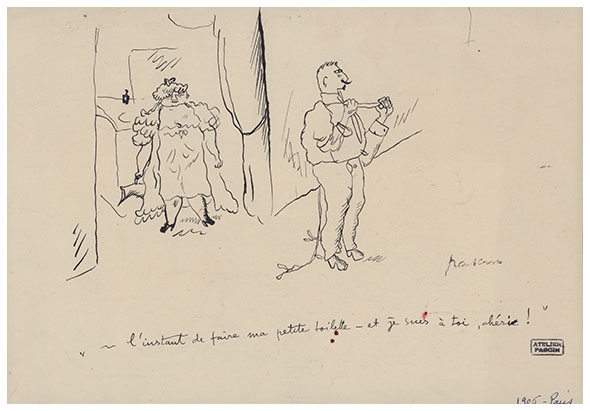 pascin
" ~ l'instant de faire ma petite toilette – et je suis à toi, chérie ! "
ATELIER
PASCIN
1906 - Paris